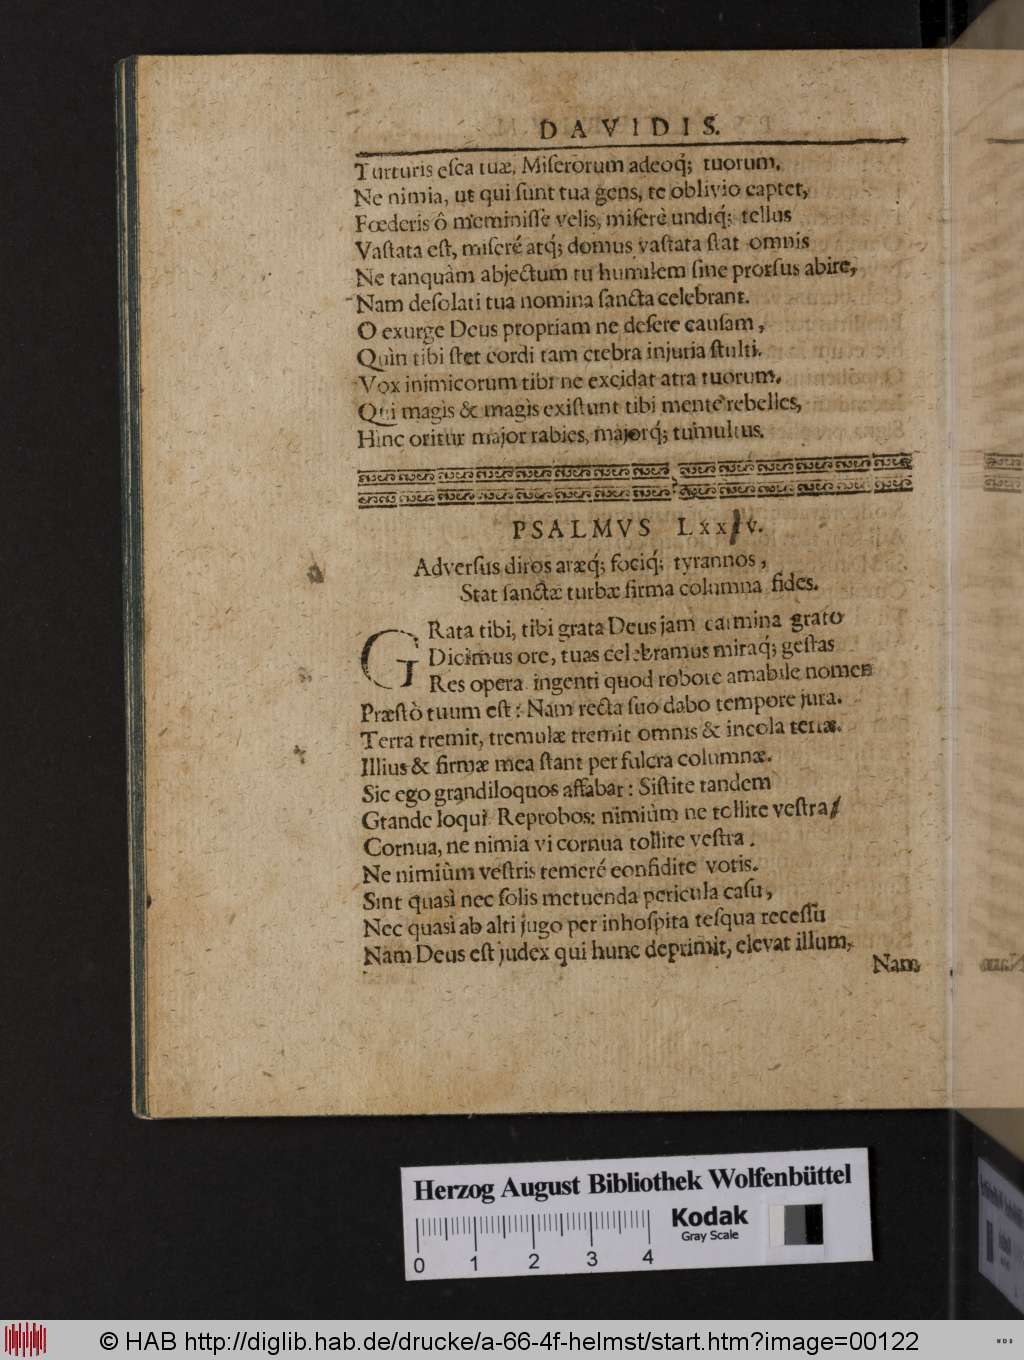 DAVIDIS.
Turturis esca tuæ, Miserorum adeoq́; tuorum.
Ne nimia, ut qui sunt tua gens, te oblivio captet,
Fœderis ô meminisse velis, miserè undiq́; tellus
Vastata est, miseré atq́; domus vastata stat omnis
Ne tanquàm abjectum tu humilem sine prorsus abire,
Nam desolati tua nomina sancta celebrant.
O exurge Deus propriam ne desere causam,
Quìn tibi stet cordi tam crebra injuria stulti.
Vox inimicorum tibi ne excidat atra tuorum.
Qui magis & magis existunt tibi mente rebelles,
Hinc oritur major rabies, majorq́; tumultus.
PSALMVS LxxIv.
Adversus diros aræq́; fociq́; tyrannos,
Stat sanctæ turbæ firma columna fides.
GRata tibi, tibi grata Deus jam carmina grato
Dicimus ore, tuas celebramus miraq́; gestas
Res opera ingenti quod robore amabile nomen
Præstò tuum est: Nam recta suo dabo tempore jura.
Terra tremit, tremulæ tremit omnis & incola terræ.
Illius & firmæ mea stant per fulcra columnæ.
Sic ego grandiloquos affabar: Sistite tandem
Grande loqui Reprobos: nimiùm ne tollite vestra
Cornua, ne nimia vi cornua tollite vestra.
Ne nimiùm vestris temeré confidite votis.
Sint quasì nec solis metuenda pericula casu,
Nec quasì ab alti jugo per inhospita tesqua recessū
Nam Deus est judex qui hunc deprimit, elevat illum,
Nam
Herzog August Bibliothek Wolfenbüttel
Kodak
Gray Scale
0 1 2 3 4
© HAB http://diglib.hab.de/drucke/a-66-4f-helmst/start.htm?image=00122